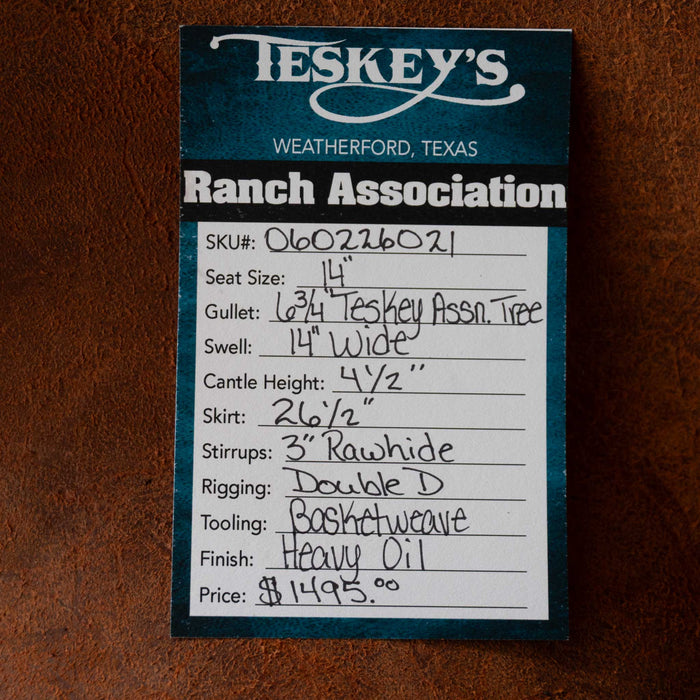 TESKEY'S
WEATHERFORD, TEXAS
Ranch Association
SKU#: 060226021
Seat Size: 14"
Gullet: 6 3/4" Teskey Assn. Tree
Swell: 14" Wide
Cantle Height: 4 1/2"
Skirt: 26 1/2"
Stirrups: 3" Rawhide
Rigging: Double D
Tooling: Basketweave
Finish: Heavy Oil
Price: $1495.00